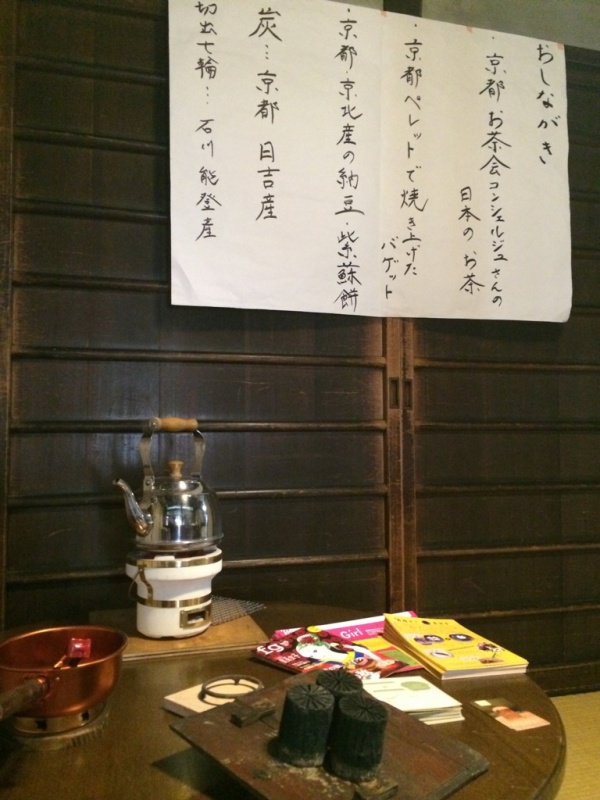 おしながき
・京都 お茶会コンシェルジュさんの
日本の お茶
・京都ペレットで焼き上げた
バゲット
・京都・京北産の納豆・紫蘇餅
炭…京都 日吉産
切出七輪… 石川 能登産
Girl